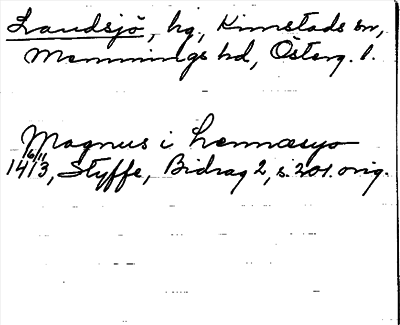 Landsjö, hg, Kimstads sn,
Memmings hd, Österg. l.
Magnus i Lemmæsyo
16/11
1413, Styffe, Bidrag 2, s. 201. orig.